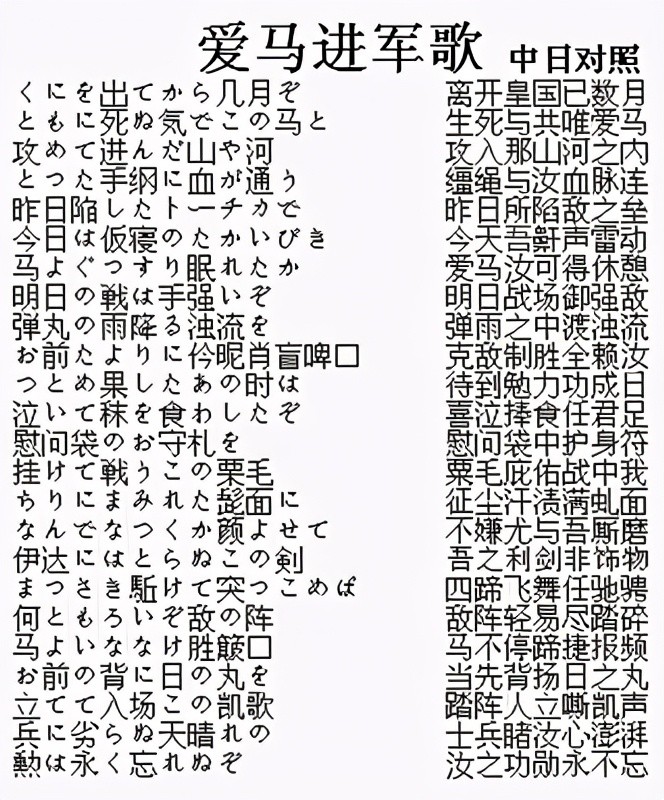 爱马进军歌 中日对照
くにを出てから几月ぞ
ともに死ぬ気でこの马と
攻めて进んだ山や河
とつた手纲に血が通う
昨日陥したトーチカで
今日は仮寝のたかいびき
马よぐつすり眠れたか
明日の戦は手强いぞ
弾丸の雨降る浊流を
お前たよりに仱昵肖盲啤□
つとめ果したあの时は
泣いて秣を食わしたぞ
慰问袋のお守札を
挂けて戦うこの栗毛
ちりにまみれた髭面に
なんでなつくか颜よせて
伊达にはとらぬこの剣
まつさき駈けて突つこめば
何ともろいぞ敌の阵
马よいななけ胜簸□
お前の背に日の丸を
立てて入场この凯歌
兵に劣らぬ天晴れの
勲は永く忘れぬぞ
离开皇国已数月
生死与共唯爱马
攻入那山河之内
缰绳与汝血脉连
昨日所陷敌之垒
今天吾鼾声雷动
爱马汝可得休憩
明日战场御强敌
弹雨之中渡浊流
克敌制胜全赖汝
待到勉力功成日
喜泣捧食任君足
慰问袋中护身符
粟毛庇佑战中我
征尘汗渍满虬面
不嫌尤与吾厮磨
吾之利剑非饰物
四蹄飞舞任驰骋
敌阵轻易尽踏碎
马不停蹄捷报频
当先背扬日之丸
踏阵人立嘶凯声
士兵睹汝心澎湃
汝之功勋永不忘